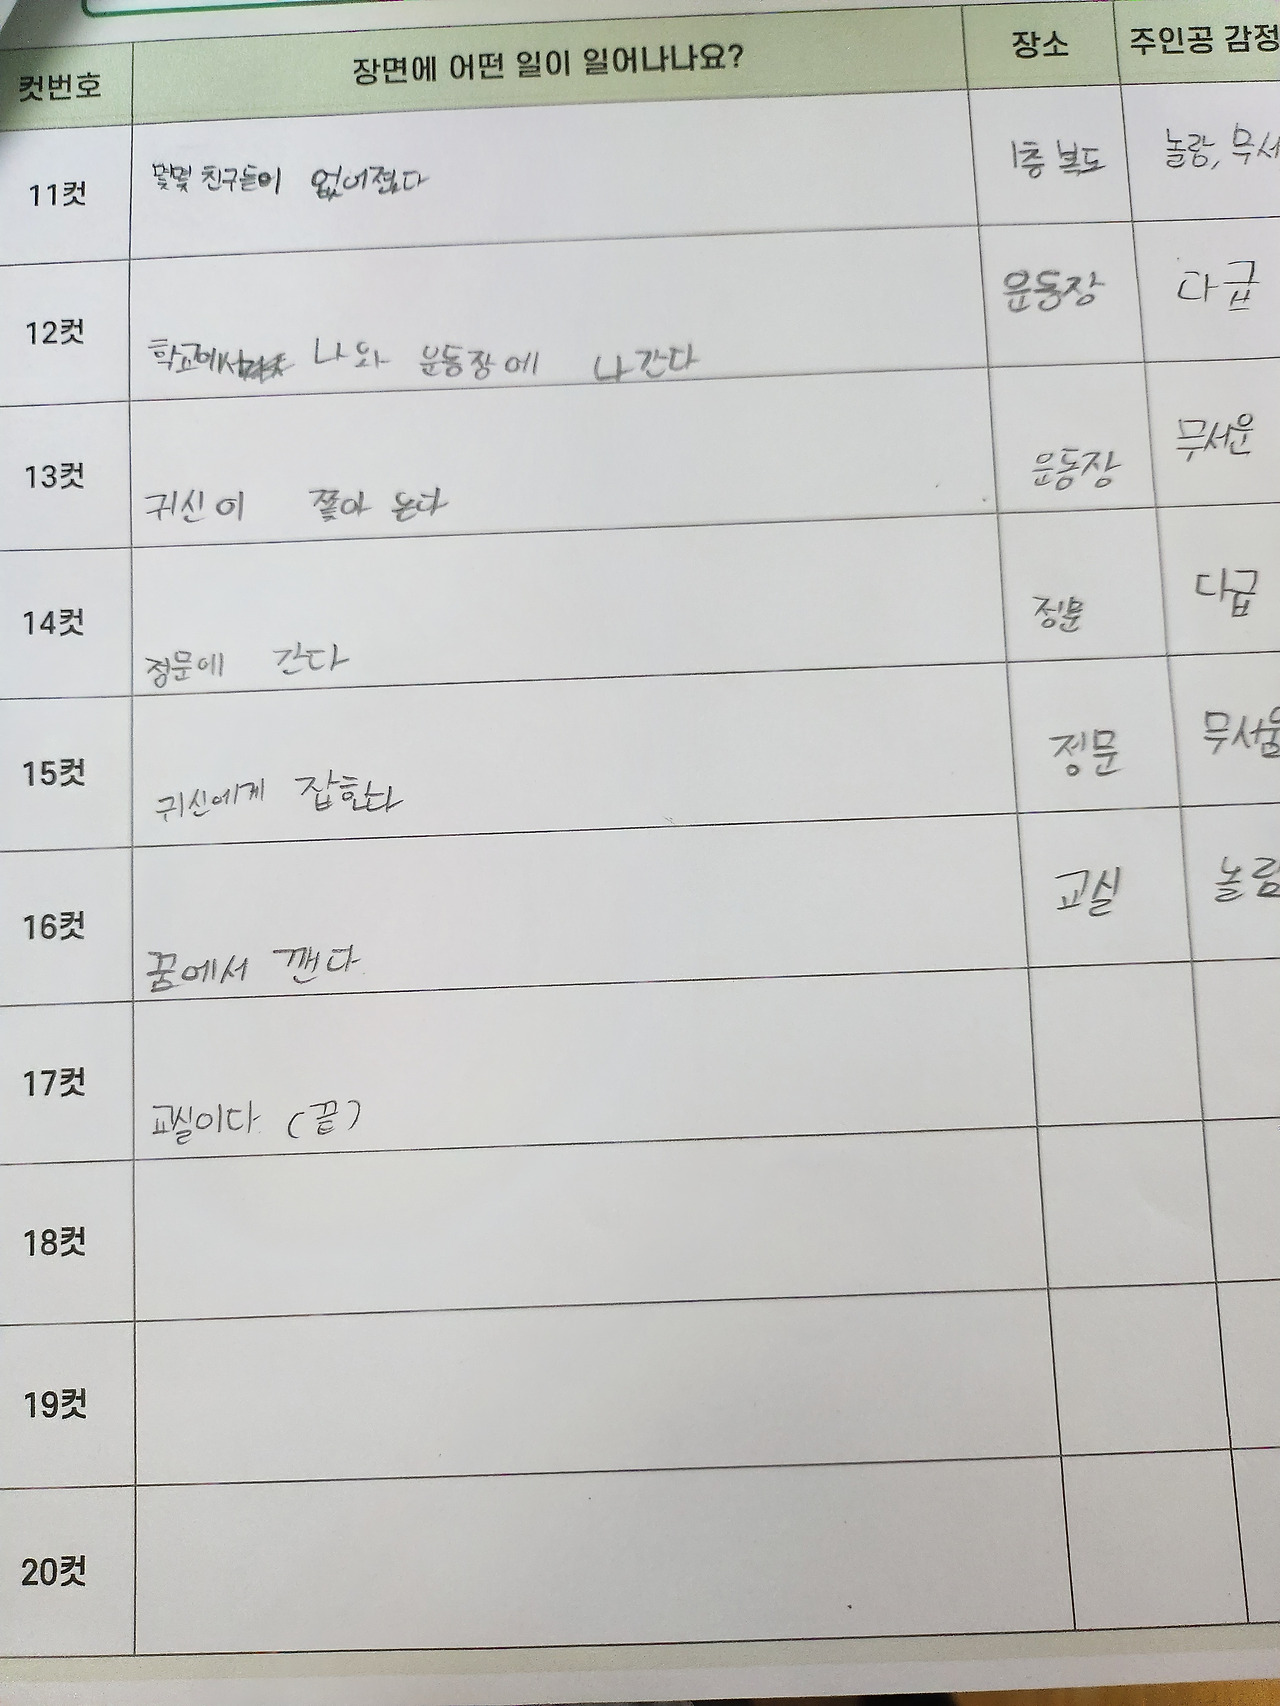 컷번호 장면에 어떤 일이 일어나나요? 장소 주인공 감정
11컷 몇몇 친구들이 없어졌다 1층 복도 놀람, 무서
12컷 학교에서 나와 운동장에 나간다 운동장 다급
13컷 귀신이 쫓아 온다 운동장 무서운
14컷 정문에 간다 정문 다급
15컷 귀신에게 잡힌다 정문 무서움
16컷 꿈에서 깬다 교실 놀람
17컷 교실이다 (끝)
18컷
19컷
20컷